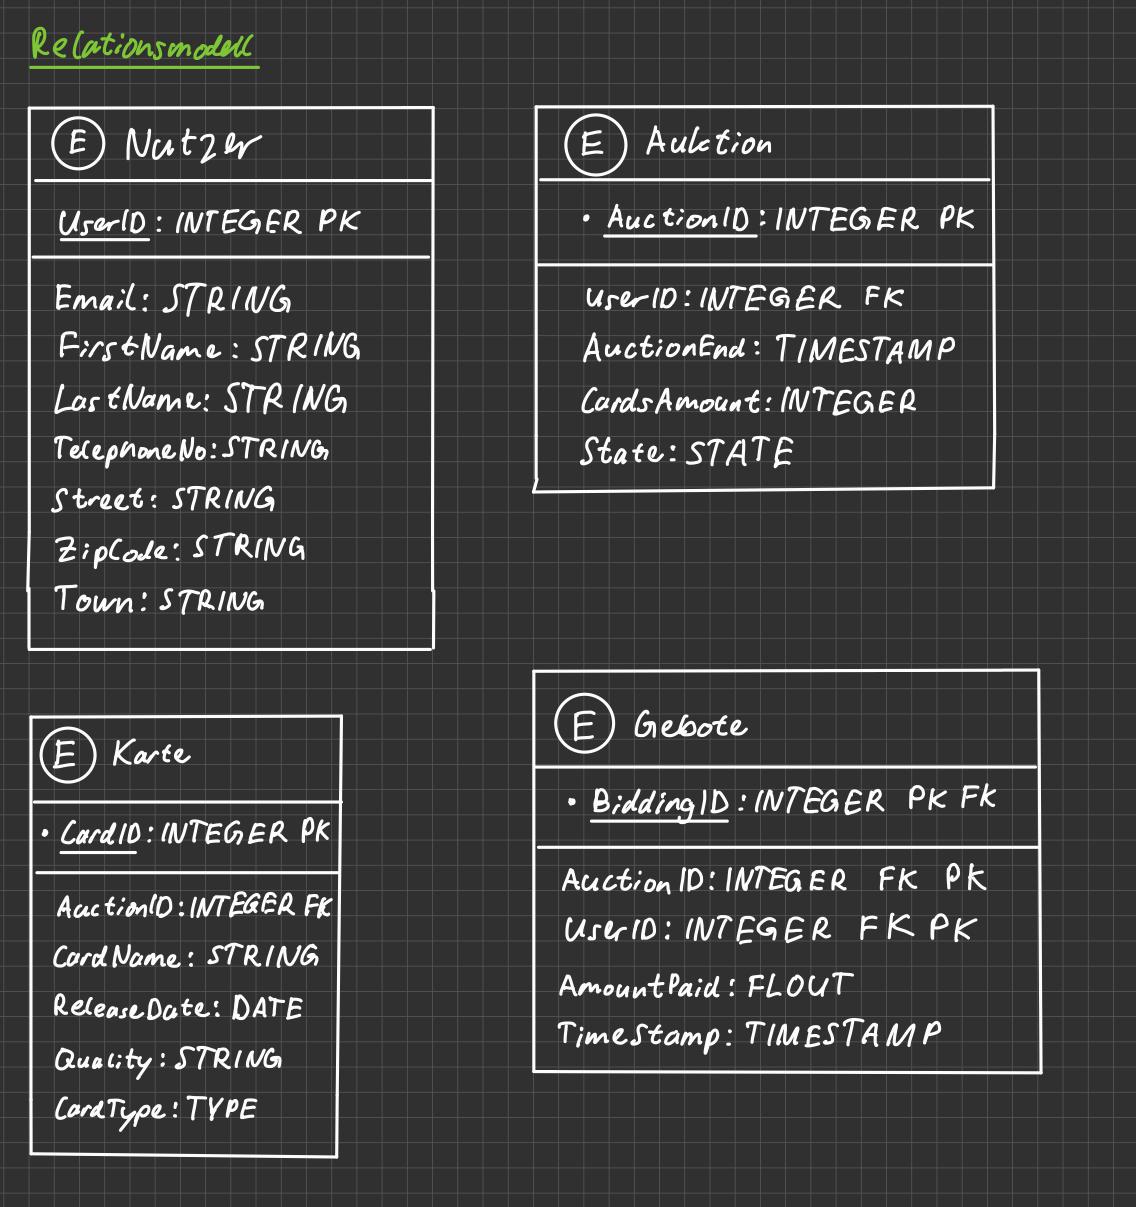 Relationsmodell
E Nutzer
UserID: INTEGER PK
Email: STRING
FirstName: STRING
LastName: STRING
TelephoneNo: STRING
Street: STRING
ZipCode: STRING
Town: STRING
E Auktion
• AuctionID: INTEGER PK
UserID: INTEGER FK
AuctionEnd: TIMESTAMP
CardsAmount: INTEGER
State: STATE
E Karte
• CardID: INTEGER PK
AuctionID: INTEGER FK
CardName: STRING
ReleaseDate: DATE
Quality: STRING
CardType: TYPE
E Gebote
• BiddingID: INTEGER PK FK
AuctionID: INTEGER FK PK
UserID: INTEGER FK PK
AmountPaid: FLOUT
TimeStamp: TIMESTAMP